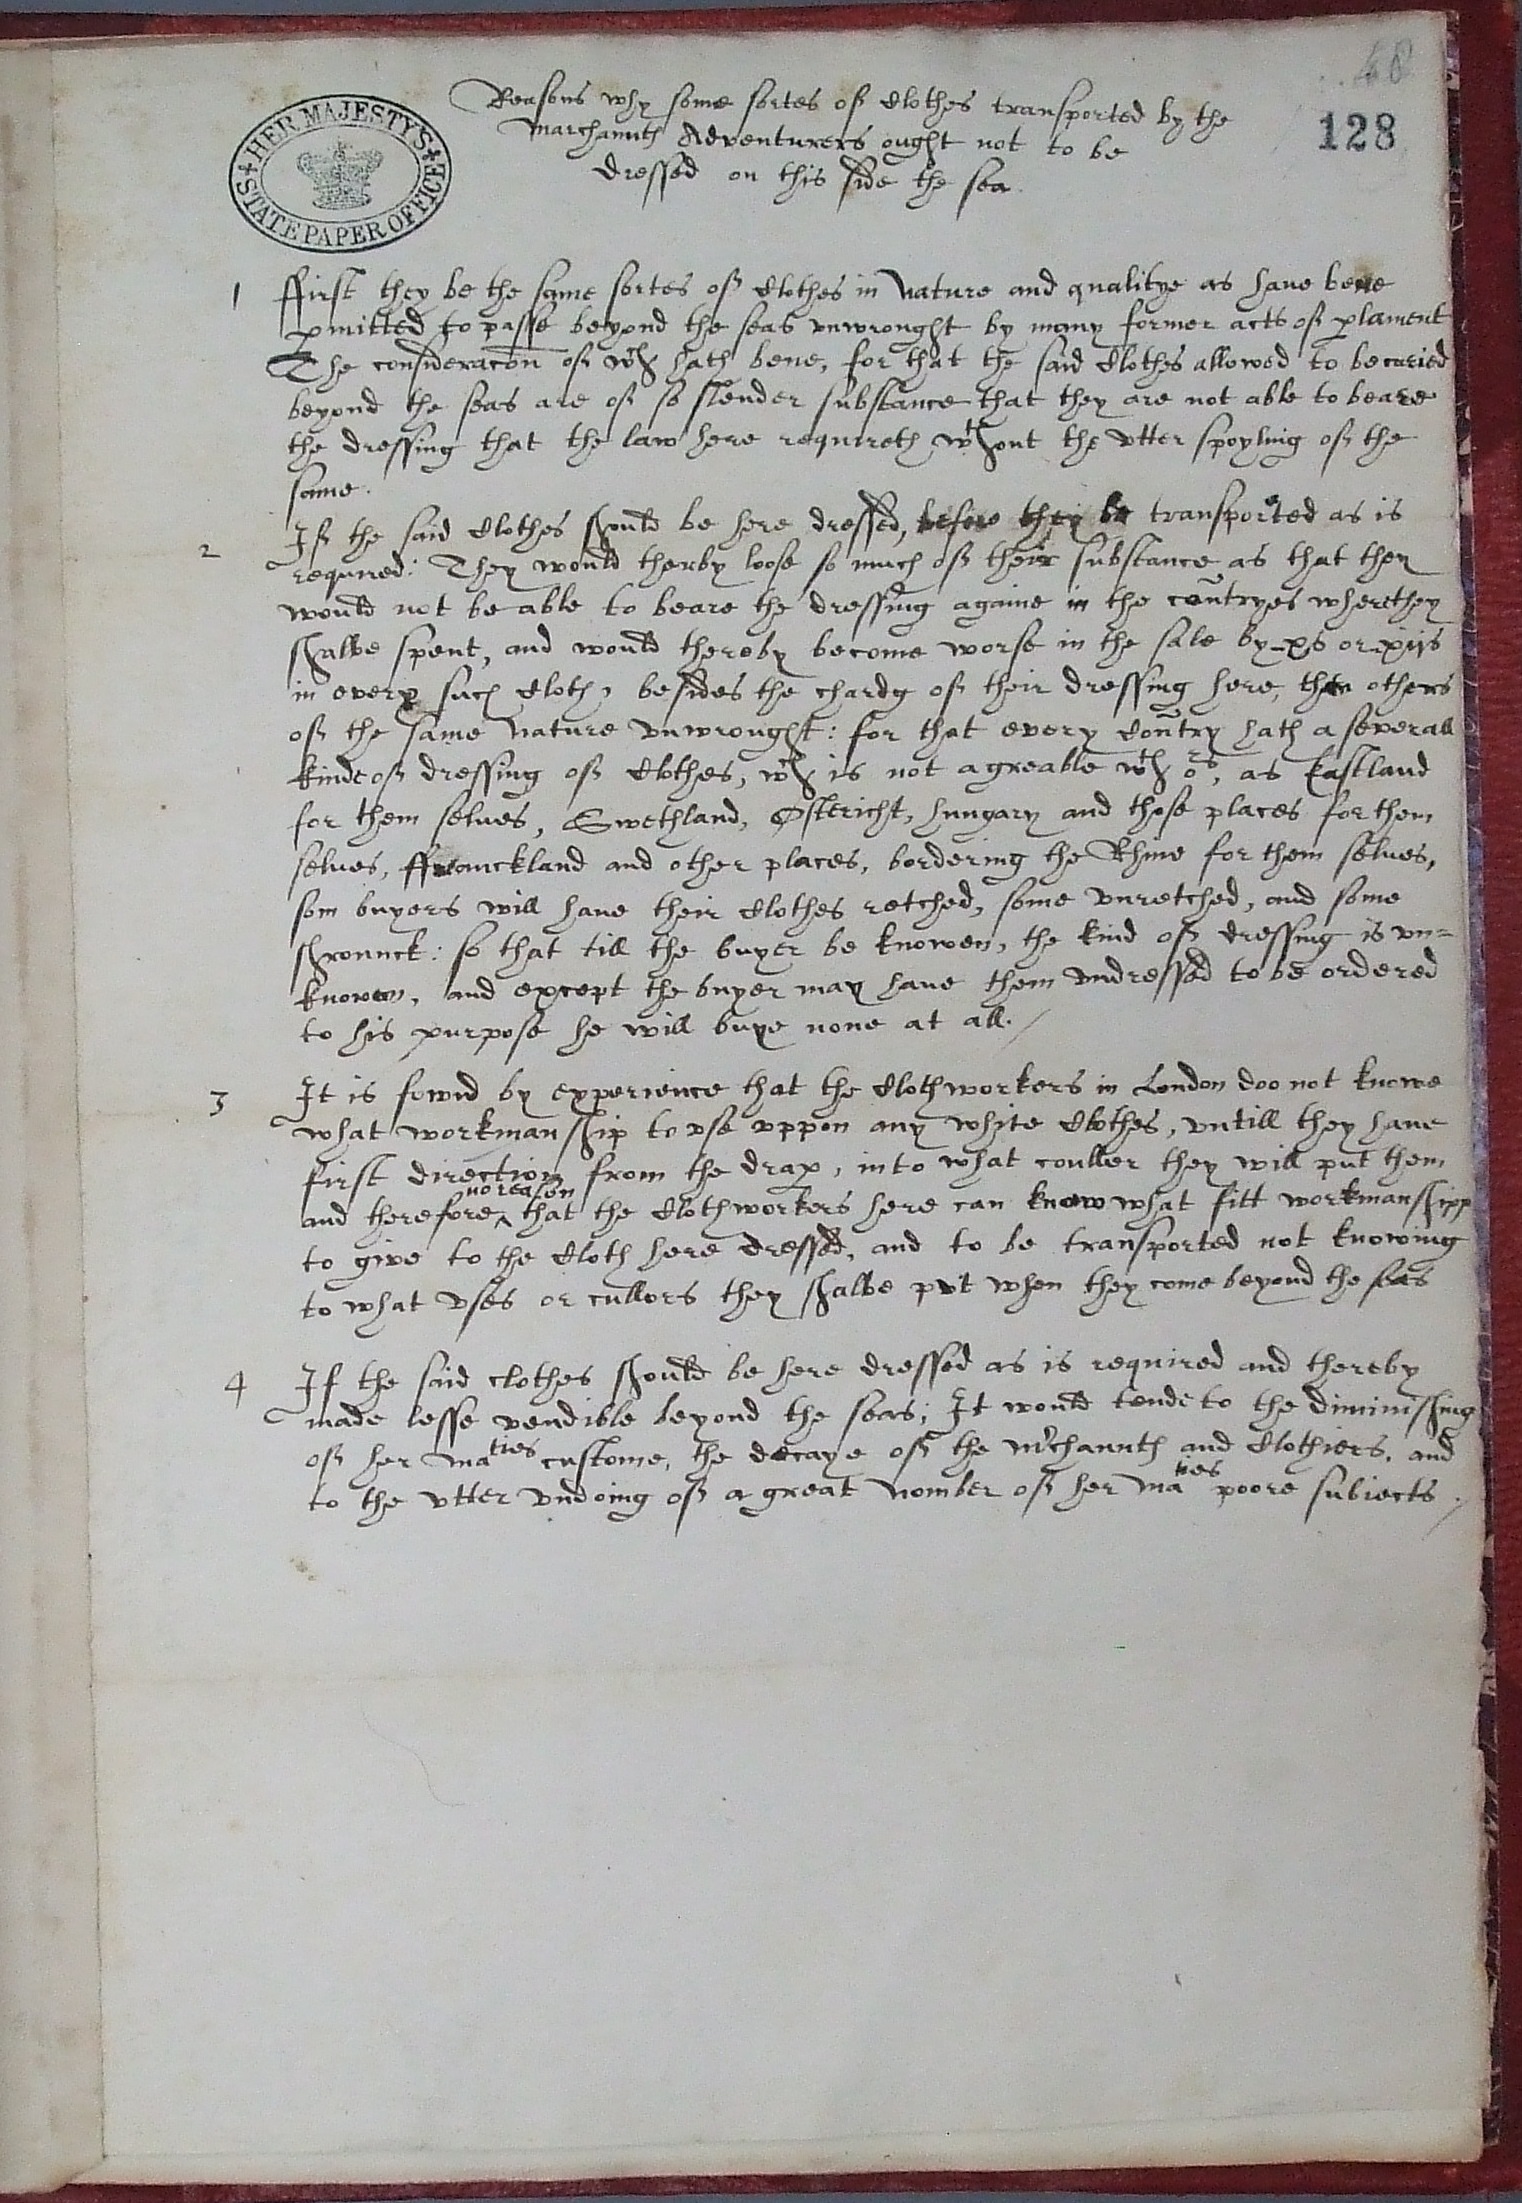 48
128
HER MAJESTYS
STATE PAPER OFFICE
Reasons why some sortes of Clothes transported by the
Marchaunts Adventurers ought not to be
dressed on this side the sea.
1 ffirst they be the same sortes of Clothes in nature and qualitye as haue bene
pmitted to passe beyond the seas vnwrought by many former acts of plament
The consideracon of wch hath bene, for that the said Clothes allowed to be caried
beyond the seas are of so slender substance that they are not able to beare
the dressing that the law here requireth wthout the vtter spoyling of the
same.
2 If the said Clothes should be here dressed, before they be transported as is
required: They would therby loose so much of their substance as that they
would not be able to beare the dressing againe in the countryes where they
shalbe spent, and would thereby become worse in the sale by xs or xijs
in every such Cloth, besides the chardg of their dressing here, then others
of the same nature vnwrought: for that every Country hath a severall
kinde of dressing of Clothes, wch is not agreable wth ors, as Eastland
for them selues, Swethland, Ostericht, hungary and those places for them
selues, ffranckland and other places, bordering the Rhine for them selues,
som buyers will haue their Clothes retched, some vnretched, and some
shronnck: so that till the buyer be knowen, the kind of dressing is vn=
knowen, and except the buyer may haue them vndressed to be ordered
to his purpose he will buye none at all./
3 It is fownd by experience that the Clothworkers in London doo not knowe
what workmanship to vse vppon any white Clothes, vntill they haue
first direction from the drap, into what couller they will put them
and therefore ^ no reason that the Clothworkers here can know what fitt workmanshipp
to give to the Cloth here dressed, and to be transported not knowing
to what vses or cullors they shalbe put when they come beyond the seas
4 If the said clothes should be here dressed as is required and thereby
made lesse vendible beyond the seas; It would tende to the diminishing
of her maties custome, the decaye of the mrchaunts and Clothiers, and
to the vtter vndoing of a great nomber of her maties poore subiects./